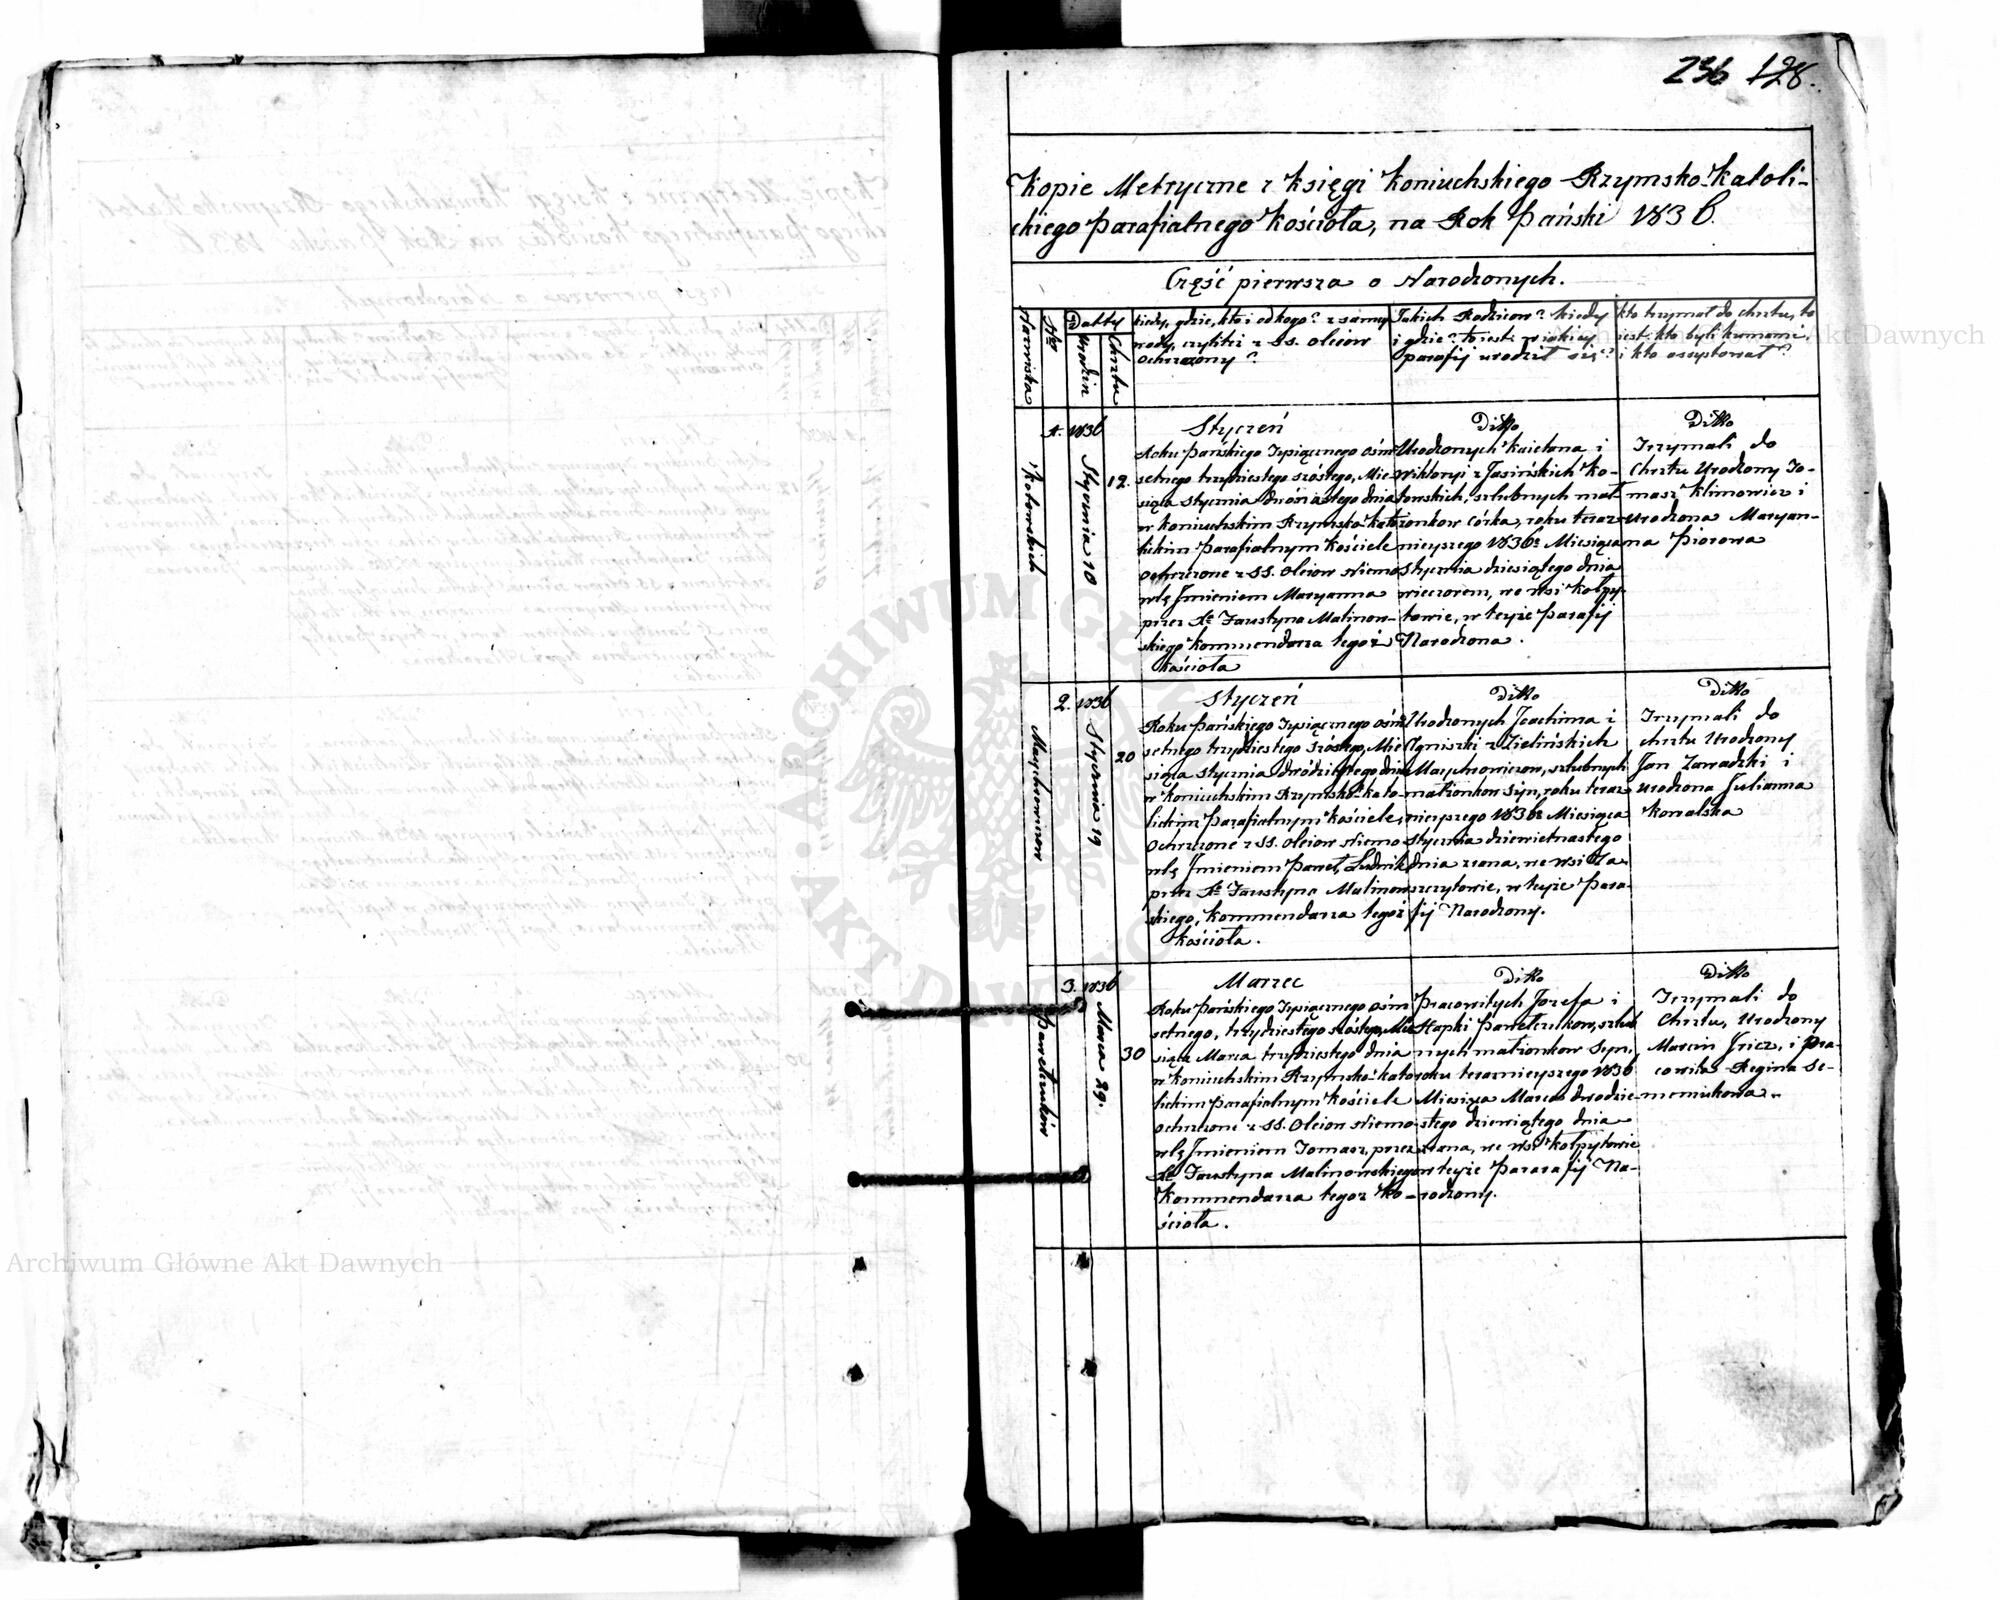 236 128.
Kopie Metryczne z Księgi Koniuchskiego Rzymsko-Katoli-
ckiego Parafialnego Kościoła, na Rok Pański 1836.
Część pierwsza o Narodzonych.
Nazwiska
Nro
Datty
Urodzin
Chrztu
kiedy, gdzie, kto i od kogo? z samey
wody, czyliteż z SS. Oleiów
Ochrzczony?
Jakich Rodziców? kiedy
i gdzie? to iest: w iakiey
parafij urodził się?
kto trzymał do chrztu, to
iest: kto byli kumami,
i kto assystował?
Kotowskich
1.
1836
Stycznia 10
12.
Styczeń
Roku Pańskiego Tysiącznego ośm
setnego trzydziestego szóstego, Mie-
siąca Stycznia dwónastego dnia
w Koniuchskim Rzymsko-Kato-
lickim Parafialnym Kościele
Ochrzczone z SS. Oleiów Niemo-
wlę Imieniem Maryanna
przez Xę Faustyna Malinow-
skiego Kommendarza tegoż
Kościoła
Ditto
Urodzonych Kaietana i
Wiktoryi z Jasińskich Ko-
towskich, szlubnych mał-
żonków Córka, roku teraz
nieyszego 1836o Miesiąca
Stycznia dziesiątego dnia
wieczorem, we wsi Kołpy-
towie, w teyże Parafij
Narodzona.
Ditto
Trzymali do
Chrztu Urodzony To-
masz Klimowicz i
Urodzona Maryan-
na Piorowa
Marchrowiczow
2.
1836
Stycznia 19
20
Styczeń
Roku Pańskiego Tysiącznego ośm
setnego trzydziestego szóstego, Mie-
siąca Stycznia dwódziestego dnia
w Koniuchskim Rzymsko-Kato-
lickim Parafialnym Kościele,
Ochrzczone z SS. Oleiow Niemo-
wlę Imieniem Paweł, Ludwik
przez Xę Faustyna Malinow-
skiego, Kommendarza tegoż
Kościoła.
Ditto
Urodzonych Joachima i
Agniszki z Zielińskich
Marchrowiczow, szlubnych
małżonkow Syn, roku teraz
nieyszego 1836o Miesiąca
Stycznia dziewietnastego
dnia zrana, we wsi Za-
szczytowie, w teyże Para-
fij Narodzony.
Ditto
Trzymali do
chrztu Urodzony
Jan Zawadzki i
Urodzona Julianna
Kowalska
Pawełczuków
3.
1836
Marca 29.
30
Marzec
Roku Pańskiego Tysiącznego ośm
setnego, trzydziestego szóstego, Mie-
siąca Marca trzydziestego dnia
w Koniuchskim Rzymsko-Kato-
lickim Parafialnym Kościele
Ochrzczone z SS. Oleiow Niemo-
wlę Imieniem Tomasz, przez
Xę Faustyna Malinowskiego
Kommendarza tegoż Ko-
ścioła.
Ditto
Pracowitych Jozefa i
Hapki Pawełczukow, szlub
nych małżonkow Syn,
roku teraznieyszego 1836
Miesiąca Marca dwodzie-
stego dziewiątego dnia
zrana, we wsi Kołpytowie
w teyże Pararafij Na-
rodzony.
Ditto
Trzymali do
Chrztu, Urodzony
Marcin Fricz, i Pra-
cowita Regina Se-
meniukowa.
Archiwum Główne Akt Dawnych
Archiwum Główne Akt Dawnych
ARCHIWUM GŁÓWNE AKT DAWNYCH